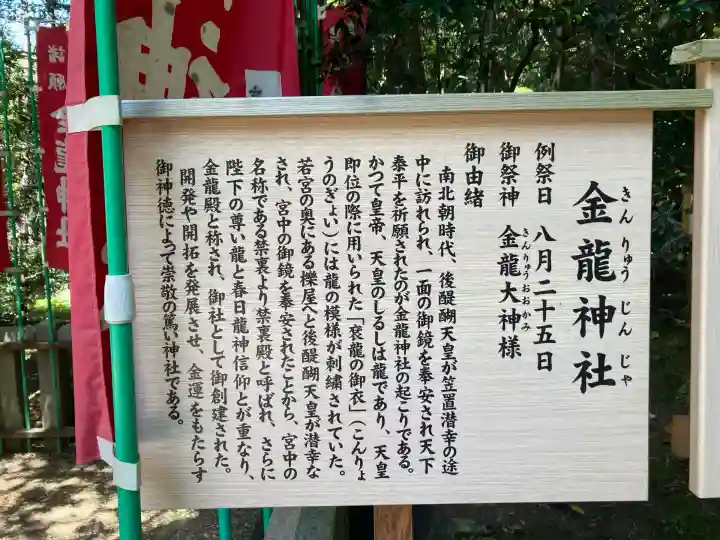 金龍神社
きんりゅうじんじゃ
例祭日　八月二十五日
御祭神　金龍大神様
きんりゅうおおかみ
御由緒
南北朝時代、後醍醐天皇が笠置潜幸の途
中に訪れられ、一面の御鏡を奉安され天下
泰平を祈願されたのが金龍神社の起こりである。
かつて皇帝、天皇のしるしは龍であり、天皇
即位の際に用いられた「袞龍の御衣」（こんりょ
うのぎょい）には龍の模様が刺繍されていた。
若宮の奥にある櫟屋へと後醍醐天皇が潜幸な
され、宮中の御鏡を奉安されたことから、宮中の
名称である禁裏より禁裏殿と呼ばれ、さらに
陛下の尊い龍と春日龍神信仰とが重なり、
金龍殿と称され、御社として御創建された。
開発や開拓を発展させ、金運をもたらす
御神徳によって崇敬の篤い神社である。
諸願
金龍神社